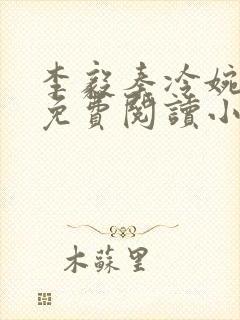 李毅秦冷婉
免費閱讀小
木蘇里